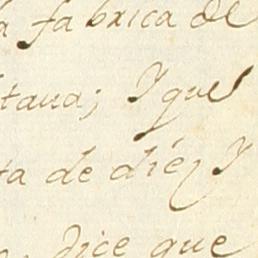 a fabrica de
taua; Y que
ta de diez Y
dice que